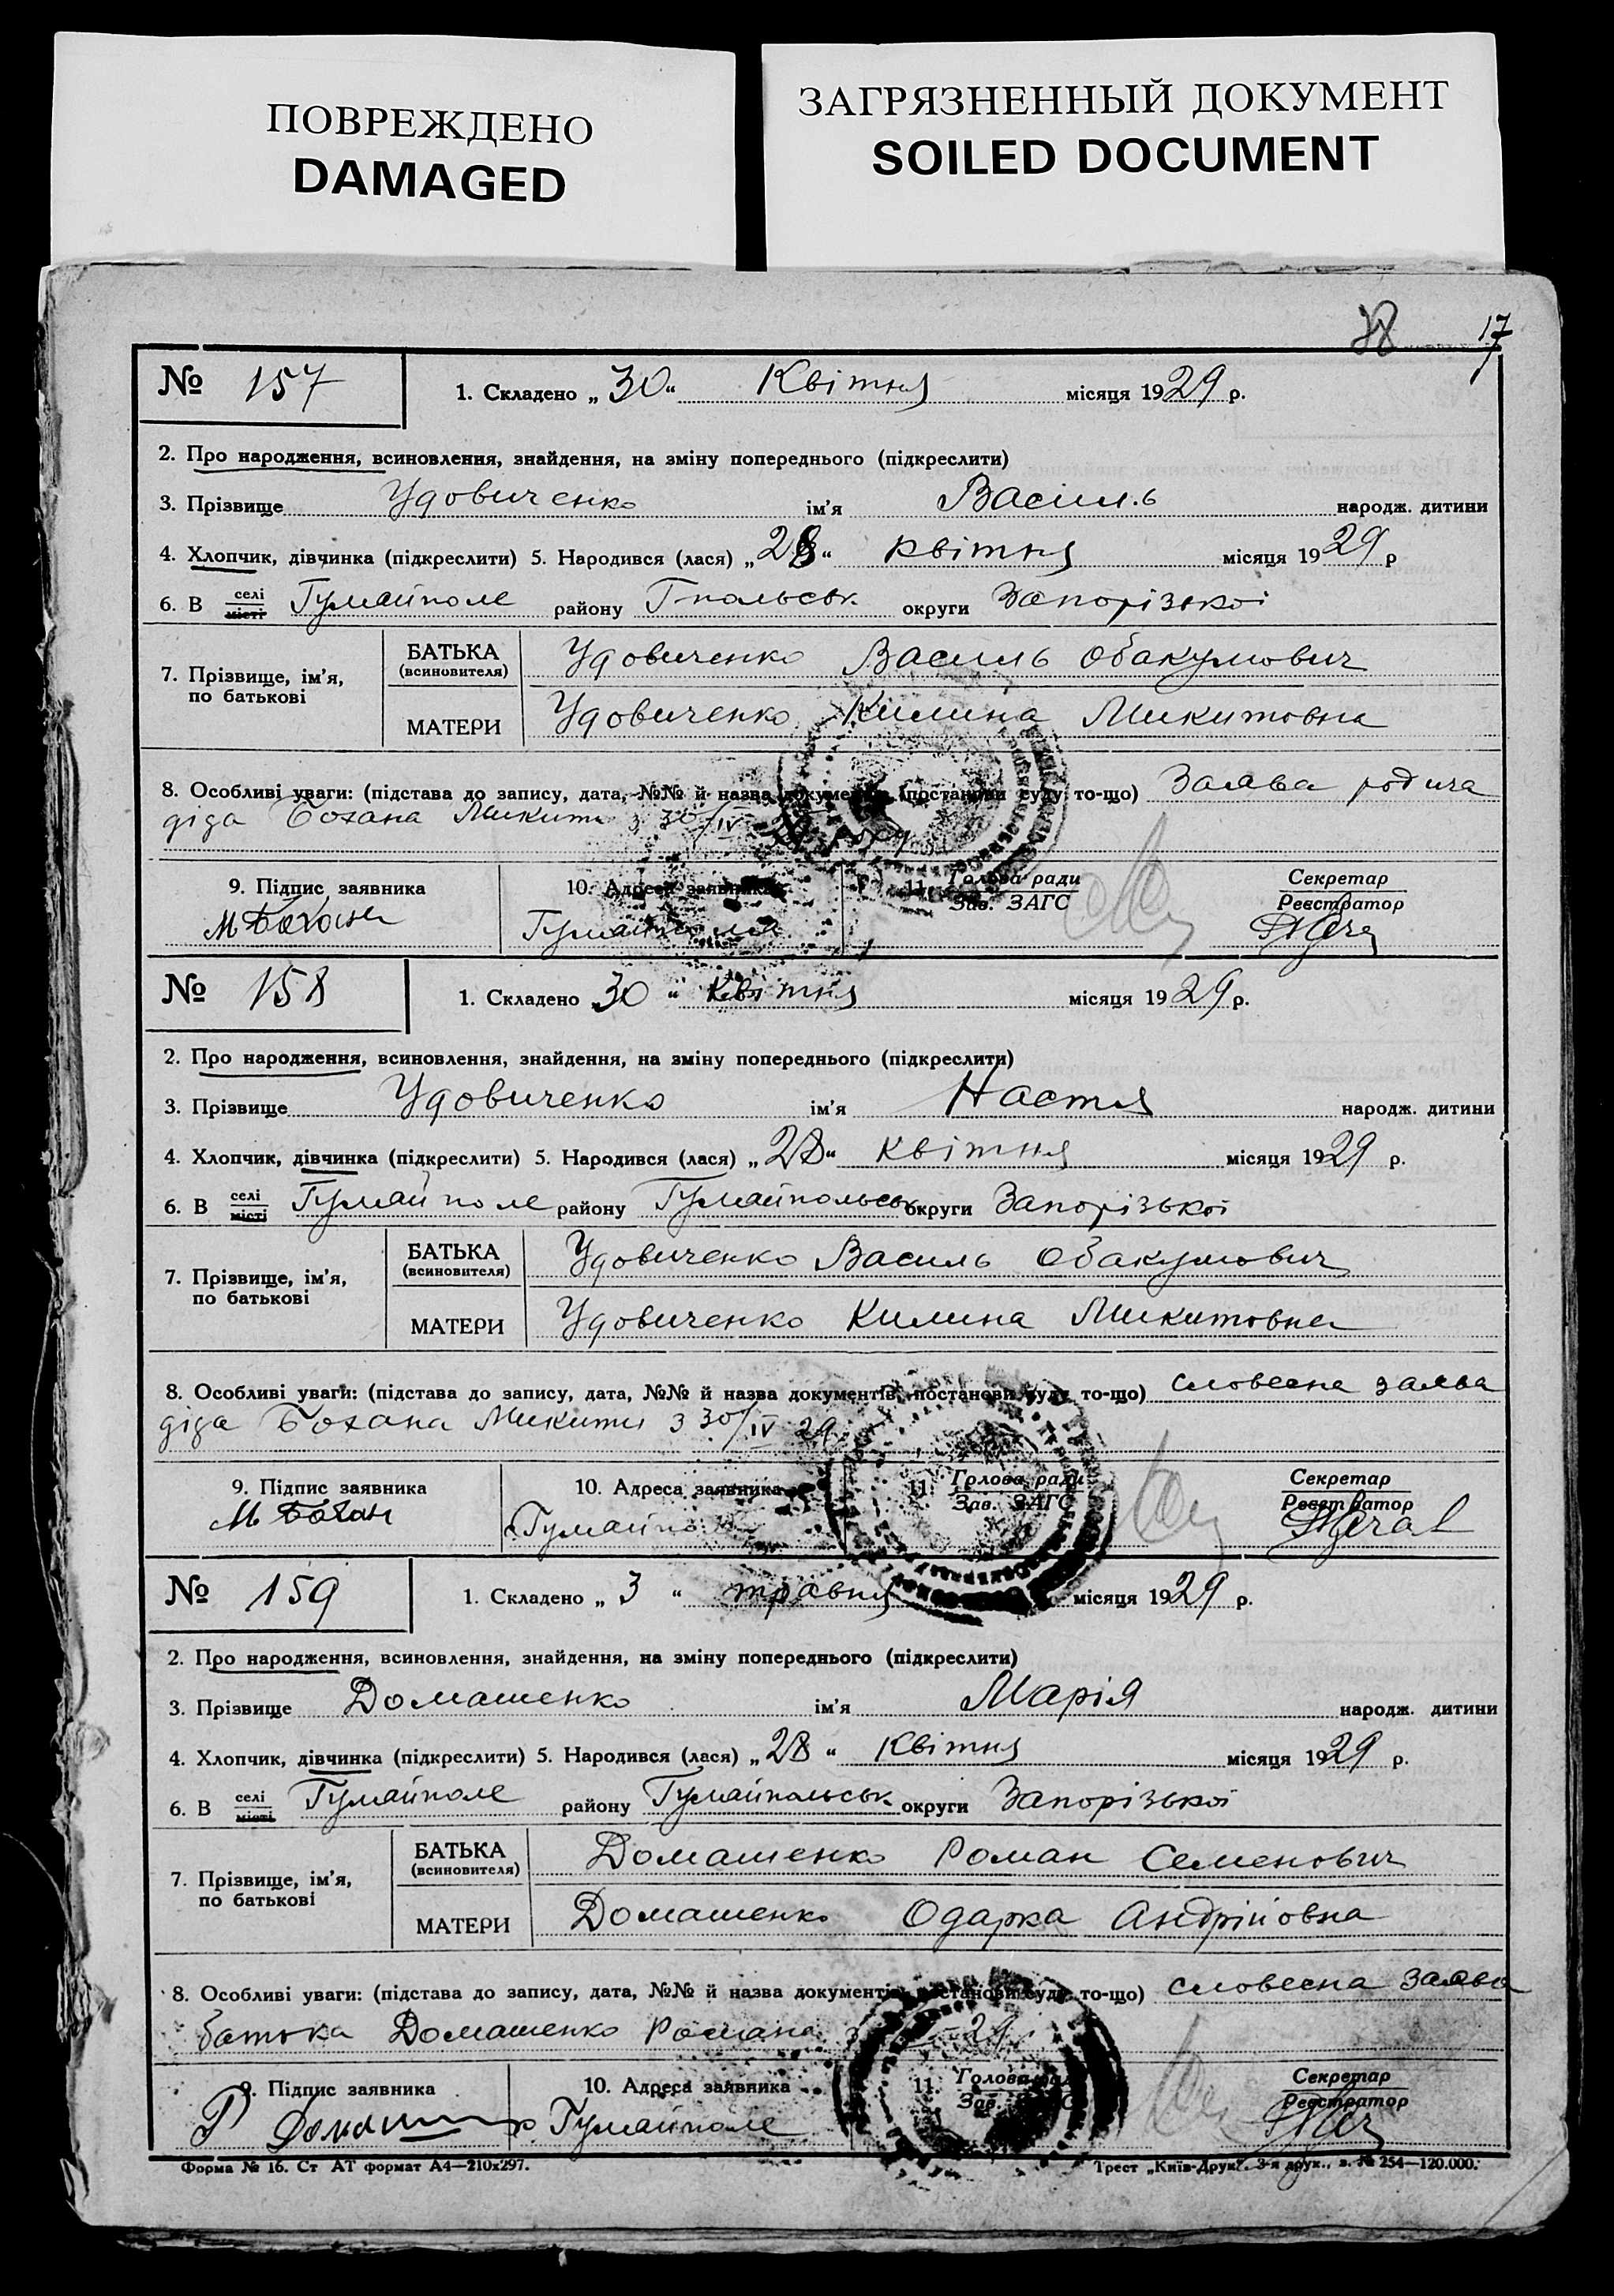 ПОВРЕЖДЕНО
DAMAGED
ЗАГРЯЗНЕННЫЙ ДОКУМЕНТ
SOILED DOCUMENT
17
№ 157 1. Складено „30“ Квітня місяця 1929 р.
2. Про народження, всиновлення, знайдення, на зміну попереднього (підкреслити)
3. Прізвище Удовиченко ім'я Василь народж. дитини
4. Хлопчик, дівчинка (підкреслити) 5. Народився (лася) „28“ квітня місяця 1929 р
6. В селі місті Гуляйполе району Гпольськ округи Запорізької
7. Прізвище, ім'я, по батькові
БАТЬКА (всиновителя) Удовиченко Василь Обакумович
МАТЕРИ Удовиченко Килина Микитовна
8. Особливі уваги: (підстава до запису, дата, №№ й назва документів, постанови суду то-що) Заява родича
діда Бохана Микити з 30/IV
9. Підпис заявника 10. Адреса заявника 11. Голова ради Зав. ЗАГС Секретар Реєстратор
М Бохан Гуляйполе
№ 158 1. Складено „30“ Квітня місяця 1929 р.
2. Про народження, всиновлення, знайдення, на зміну попереднього (підкреслити)
3. Прізвище Удовиченко ім'я Настя народж. дитини
4. Хлопчик, дівчинка (підкреслити) 5. Народився (лася) „28“ квітня місяця 1929 р.
6. В селі місті Гуляйполе району Гуляйпольськ округи Запорізької
7. Прізвище, ім'я, по батькові
БАТЬКА (всиновителя) Удовиченко Василь Обакумович
МАТЕРИ Удовиченко Килина Микитовна
8. Особливі уваги: (підстава до запису, дата, №№ й назва документів, постанови суду то-що) словесна заява
діда Бохана Микити з 30/IV 29
9. Підпис заявника 10. Адреса заявника 11. Голова ради Зав. ЗАГС Секретар Реєстратор
М Бохан Гуляйпо
№ 159 1. Складено „3“ травня місяця 1929 р.
2. Про народження, всиновлення, знайдення, на зміну попереднього (підкреслити)
3. Прізвище Домашенко ім'я Марія народж. дитини
4. Хлопчик, дівчинка (підкреслити) 5. Народився (лася) „28“ Квітня місяця 1929 р.
6. В селі місті Гуляйполе району Гуляйпольськ округи Запорізької
7. Прізвище, ім'я, по батькові
БАТЬКА (всиновителя) Домашенко Роман Семенович
МАТЕРИ Домашенко Одарка Андрійовна
8. Особливі уваги: (підстава до запису, дата, №№ й назва документів, постанови суду то-що) словесна заява
батька Домашенко Романа 29
9. Підпис заявника 10. Адреса заявника 11. Голова ради Зав. ЗАГС Секретар Реєстратор
Р Домашенко Гуляйполе
Форма № 16. Ст АТ формат А4—210х297. Трест „Київ-Друк“. 3-я друк., з. № 254—120.000.